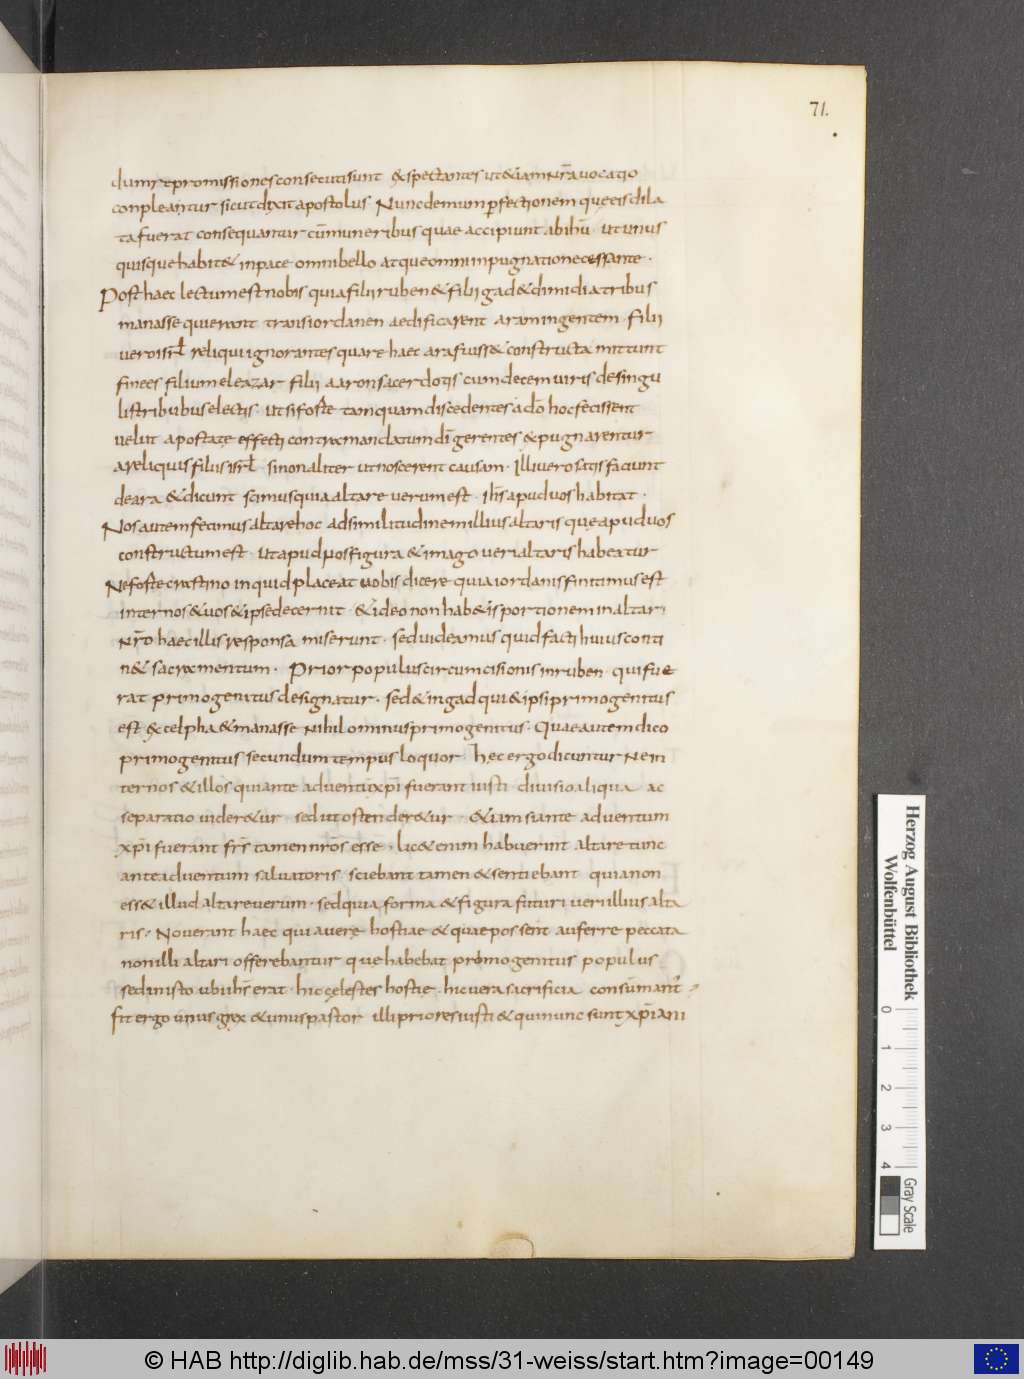 71.
dum repromissiones consecuti sunt &spectantes ut &iam nr̄a vocatio
conpleantur sicut dixit apostolus Nunc demum perfectionem que eis dila
ta fuerat consequantur cum muneribus quae accipiunt ab ihū · ut unus
quisque habit& in pace omni bello atque omni inpugnatione cessante ·
Post haec lectum est nobis quia filii ruben & filii gad & dimidia tribus
manasse qui erant transiordanen aedificarent aram ingentem · filii
vero isrl̄ reliqui ignorantes quare haec ara fuiss& constructa mittunt
finees filium eleazar filii aaron sacerdotis cum decem viris de singu
lis tribubus electis · ut si forte tamquam discedentes a dō hoc fecissent
velut apostate effecti contra mandatum dī gerentes expugnarentur
a reliquis filiis isrl̄ · sin on aliter ut noscerent causam · Illi vero satis faciunt
de ara & dicunt scimus quia altare verum est · ih̄s apud vos habitat ·
Nos autem fecimus altare hoc ad similitudinem illius altaris que apud vos
constructum est · ut apud nos figura & imago veri altaris habeatur
Ne forte crastino inquid placeat vobis dicere quia iordanis finitimus est
inter nos & vos & ipse decernit · & ideo non hab&is portionem in altari
nr̄o haec illis responsa miserunt · sed videamus quid facti huius conti
n& sacramentum · Prior populus circumcisionis in ruben · qui fue
rat primogenitus designatur · sed & in gad qui & ipse primogenitus
est ex celpha & manasse nihilominus primogenitus · Quae autem dico
primogenitus secundum tempus loquor · hec ergo dicuntur ne in
ter nos & illos qui ante adventū xp̄i fuerant iusti divisio aliqua ac
separatio vider&ur sed ut ostender&ur · &iam si ante adventum
xp̄i fuerant fr̄s tamen nr̄os esse · lic& enim habuerint altare tunc
ante adventum salvatoris sciebant tamen & sentiebant quia non
ess& illud altare verum · sed quia forma & figura futuri veri illius alta
ris · Noverant haec quia vere hostiae & quae possent auferre peccata
non illi altari offerebantur que habebat primogenitus populus
sed in isto ubi ih̄s erat · hic celestes hostie · hic vera sacrificia consūmant̄
fit ergo unus grex & unus pastor illi priores iusti & qui nunc sunt xp̄iani
Herzog August Bibliothek
Wolfenbüttel
0 1 2 3 4
Gray Scale
© HAB http://diglib.hab.de/mss/31-weiss/start.htm?image=00149